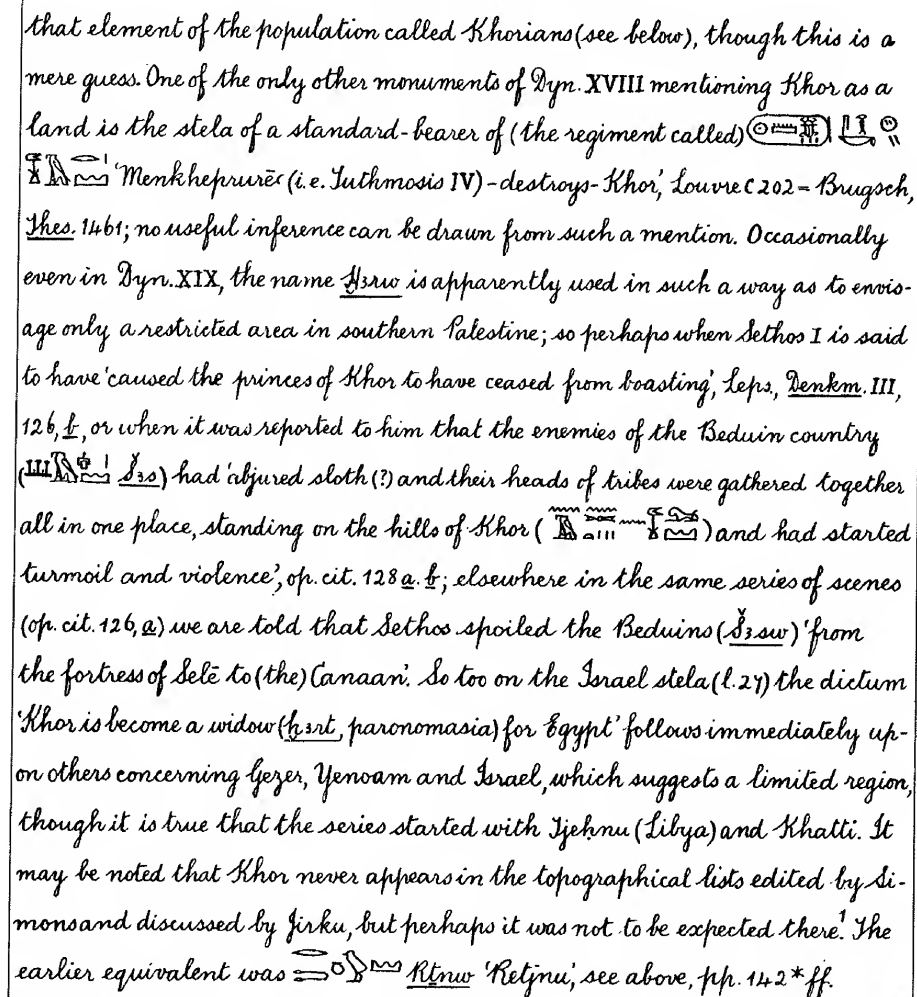 that element of the population called Khorians (see below), though this is a
mere guess. One of the only other monuments of Dyn. XVIII mentioning Khor as a
land is the stela of a standard-bearer of (the regiment called)
'Menkheprurēꜥ (i.e. Tuthmosis IV)-destroys-Khor', Louvre C 202 = Brugsch,
Thes. 1461; no useful inference can be drawn from such a mention. Occasionally
even in Dyn. XIX, the name Ḫꜣrw is apparently used in such a way as to envis-
age only a restricted area in southern Palestine; so perhaps when Sethos I is said
to have 'caused the princes of Khor to have ceased from boasting', Leps., Denkm. III,
126, b, or when it was reported to him that the enemies of the Beduin country
( Šꜣs) had 'abjured sloth (?) and their heads of tribes were gathered together
all in one place, standing on the hills of Khor ( ) and had started
turmoil and violence', op. cit. 128 a. b; elsewhere in the same series of scenes
(op. cit. 126, a) we are told that Sethos spoiled the Beduins (Šꜣsw) 'from
the fortress of Selē to (the) Canaan'. So too on the Israel stela (l. 27) the dictum
'Khor is become a widow (ḫꜣrt, paronomasia) for Egypt' follows immediately up-
on others concerning Gezer, Yenoam and Israel, which suggests a limited region,
though it is true that the series started with Tjeḥnu (Libya) and Khatti. It
may be noted that Khor never appears in the topographical lists edited by Si-
mons and discussed by Jirku, but perhaps it was not to be expected there.¹ The
earlier equivalent was Rṯnw 'Retjnu', see above, pp. 142* ff.